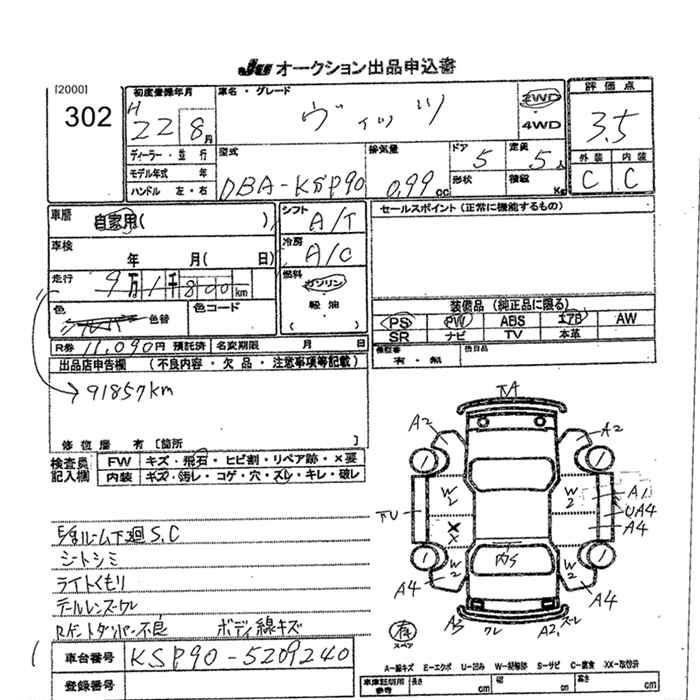 JU オークション出品申込書
[2000]
302
初度登録年月
H 22 8月
車名・グレード
ヴィッツ
2WD
4WD
評価点
3.5
外装 内装
C C
ディーラー・並行
モデル年式 年
ハンドル 左・右
型式
DBA-KSP90
排気量
0.99 cc
ドア 5
定員 5人
形状
積載 Kg
車歴 自家用( )
シフト A/T
セールスポイント (正常に機能するもの)
車検 年 月( 日)
冷房 A/C
走行 9万1千800km
燃料 ガソリン
軽油
( )
色 色替
色コード
装備品 (純正品に限る)
PS PW ABS エアB AW
SR ナビ TV 本革
R券 11,090円 預託済
名変期限 月 日
保証書 有・無
後日品
出品店申告欄 (不良内容・欠品・注意事項等記載)
91857km
修復歴 有 [箇所 ]
検査員記入欄
FW キズ・飛石・ヒビ割・リペア跡・×要
内装 キズ・汚レ・コゲ・穴・スレ・キレ・破レ
S.C
シートシミ
ライトくもり
テールレンズワレ
不良 ボディ線キズ
車台番号 KSP90-5209240
登録番号
A2 A2
1 1
W2 W2
A1
UA4
A4
X
W2 W2
1 1
A4 A4
A3 ワレ A2.スレ
有
スペア
A-線キズ E-エクボ U-凹み W-補修跡 S-サビ C-腐食 XX-取替済
車庫証明用参考 長さ cm 幅 cm 高さ cm